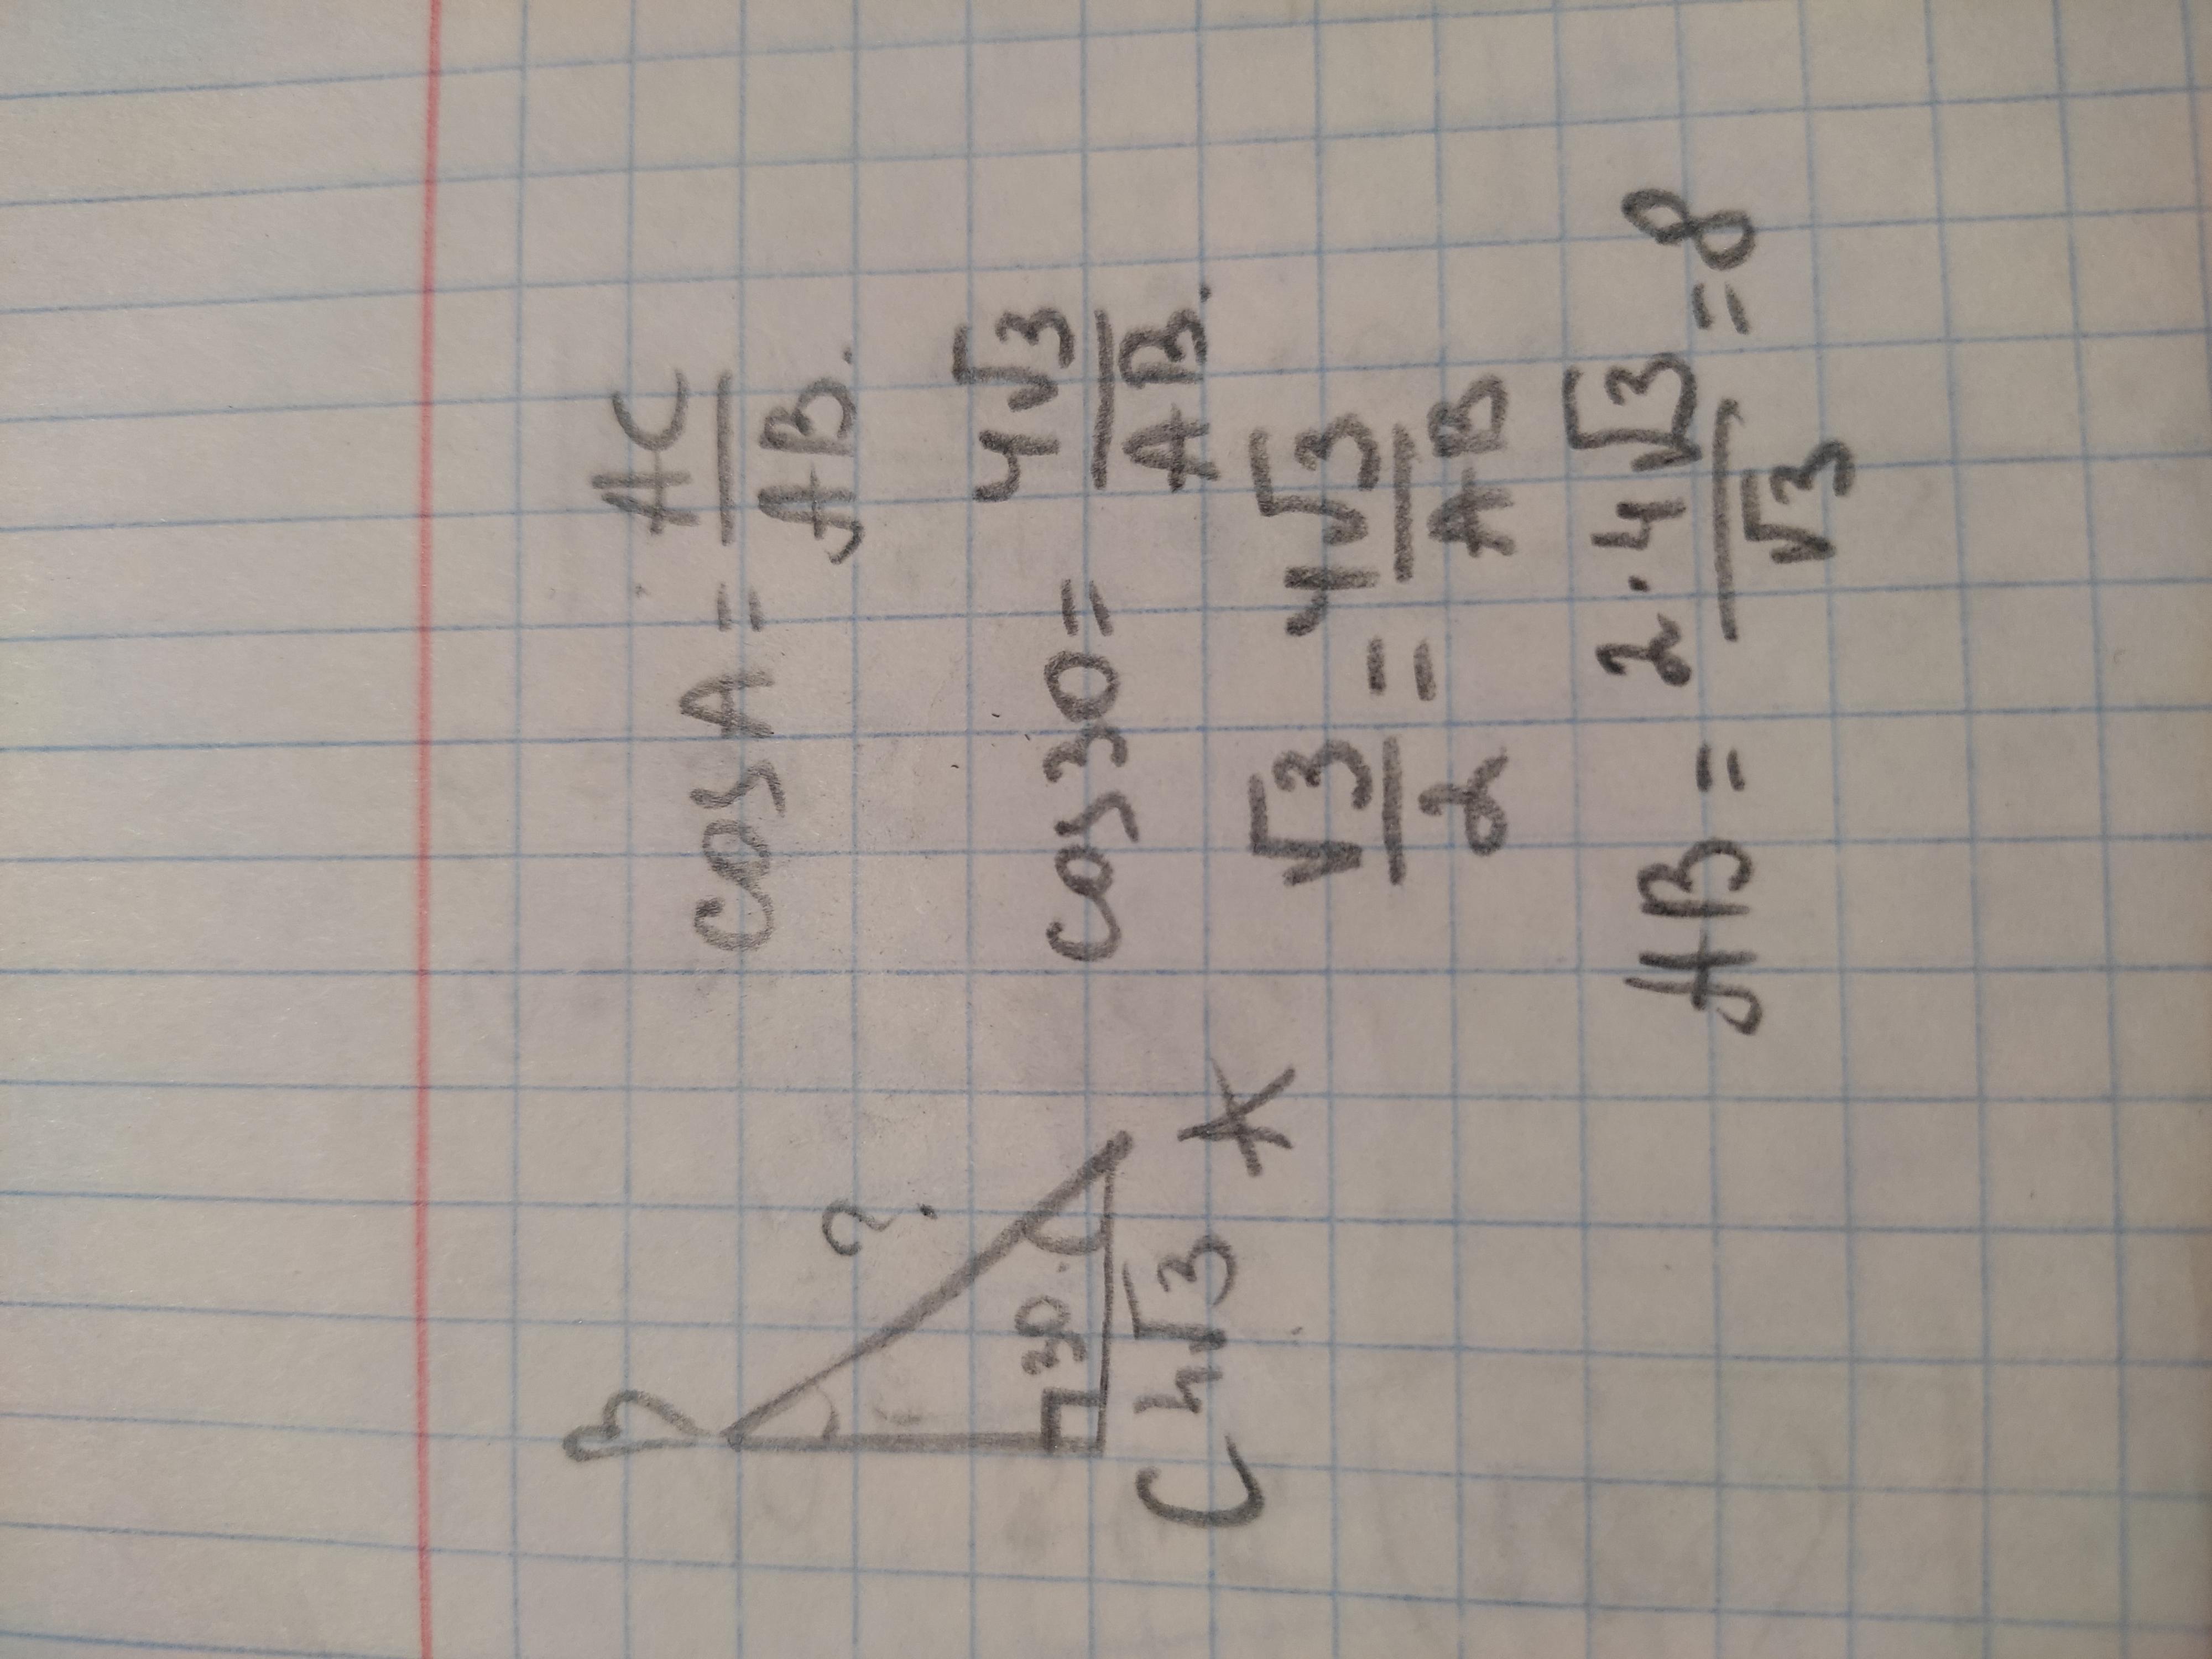 B
?
30°
C 4√3 A
cos A = AC/AB.
cos 30 = 4√3/AB.
√3/2 = 4√3/AB
AB = 2·4√3/√3 = 8